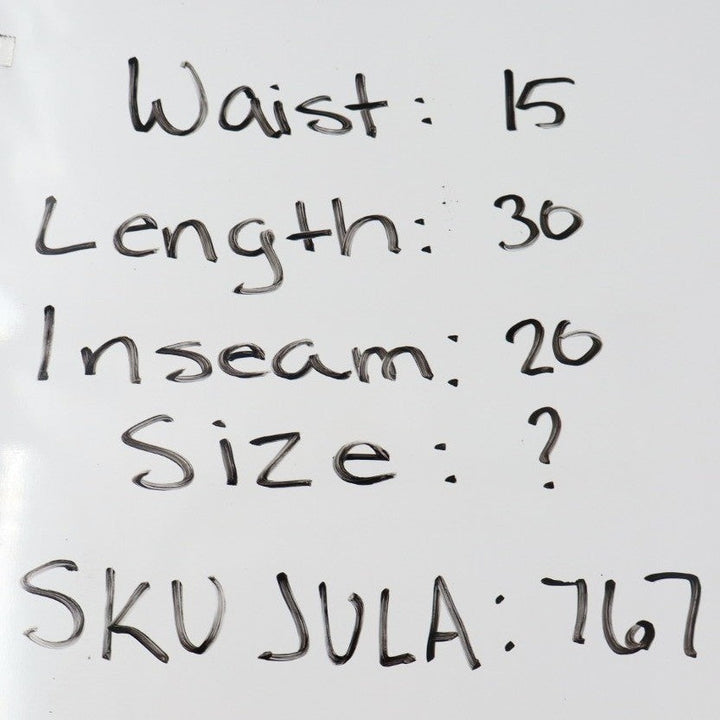 Waist: 15
Length: 30
Inseam: 20
Size: ?
SKU JULA: 767